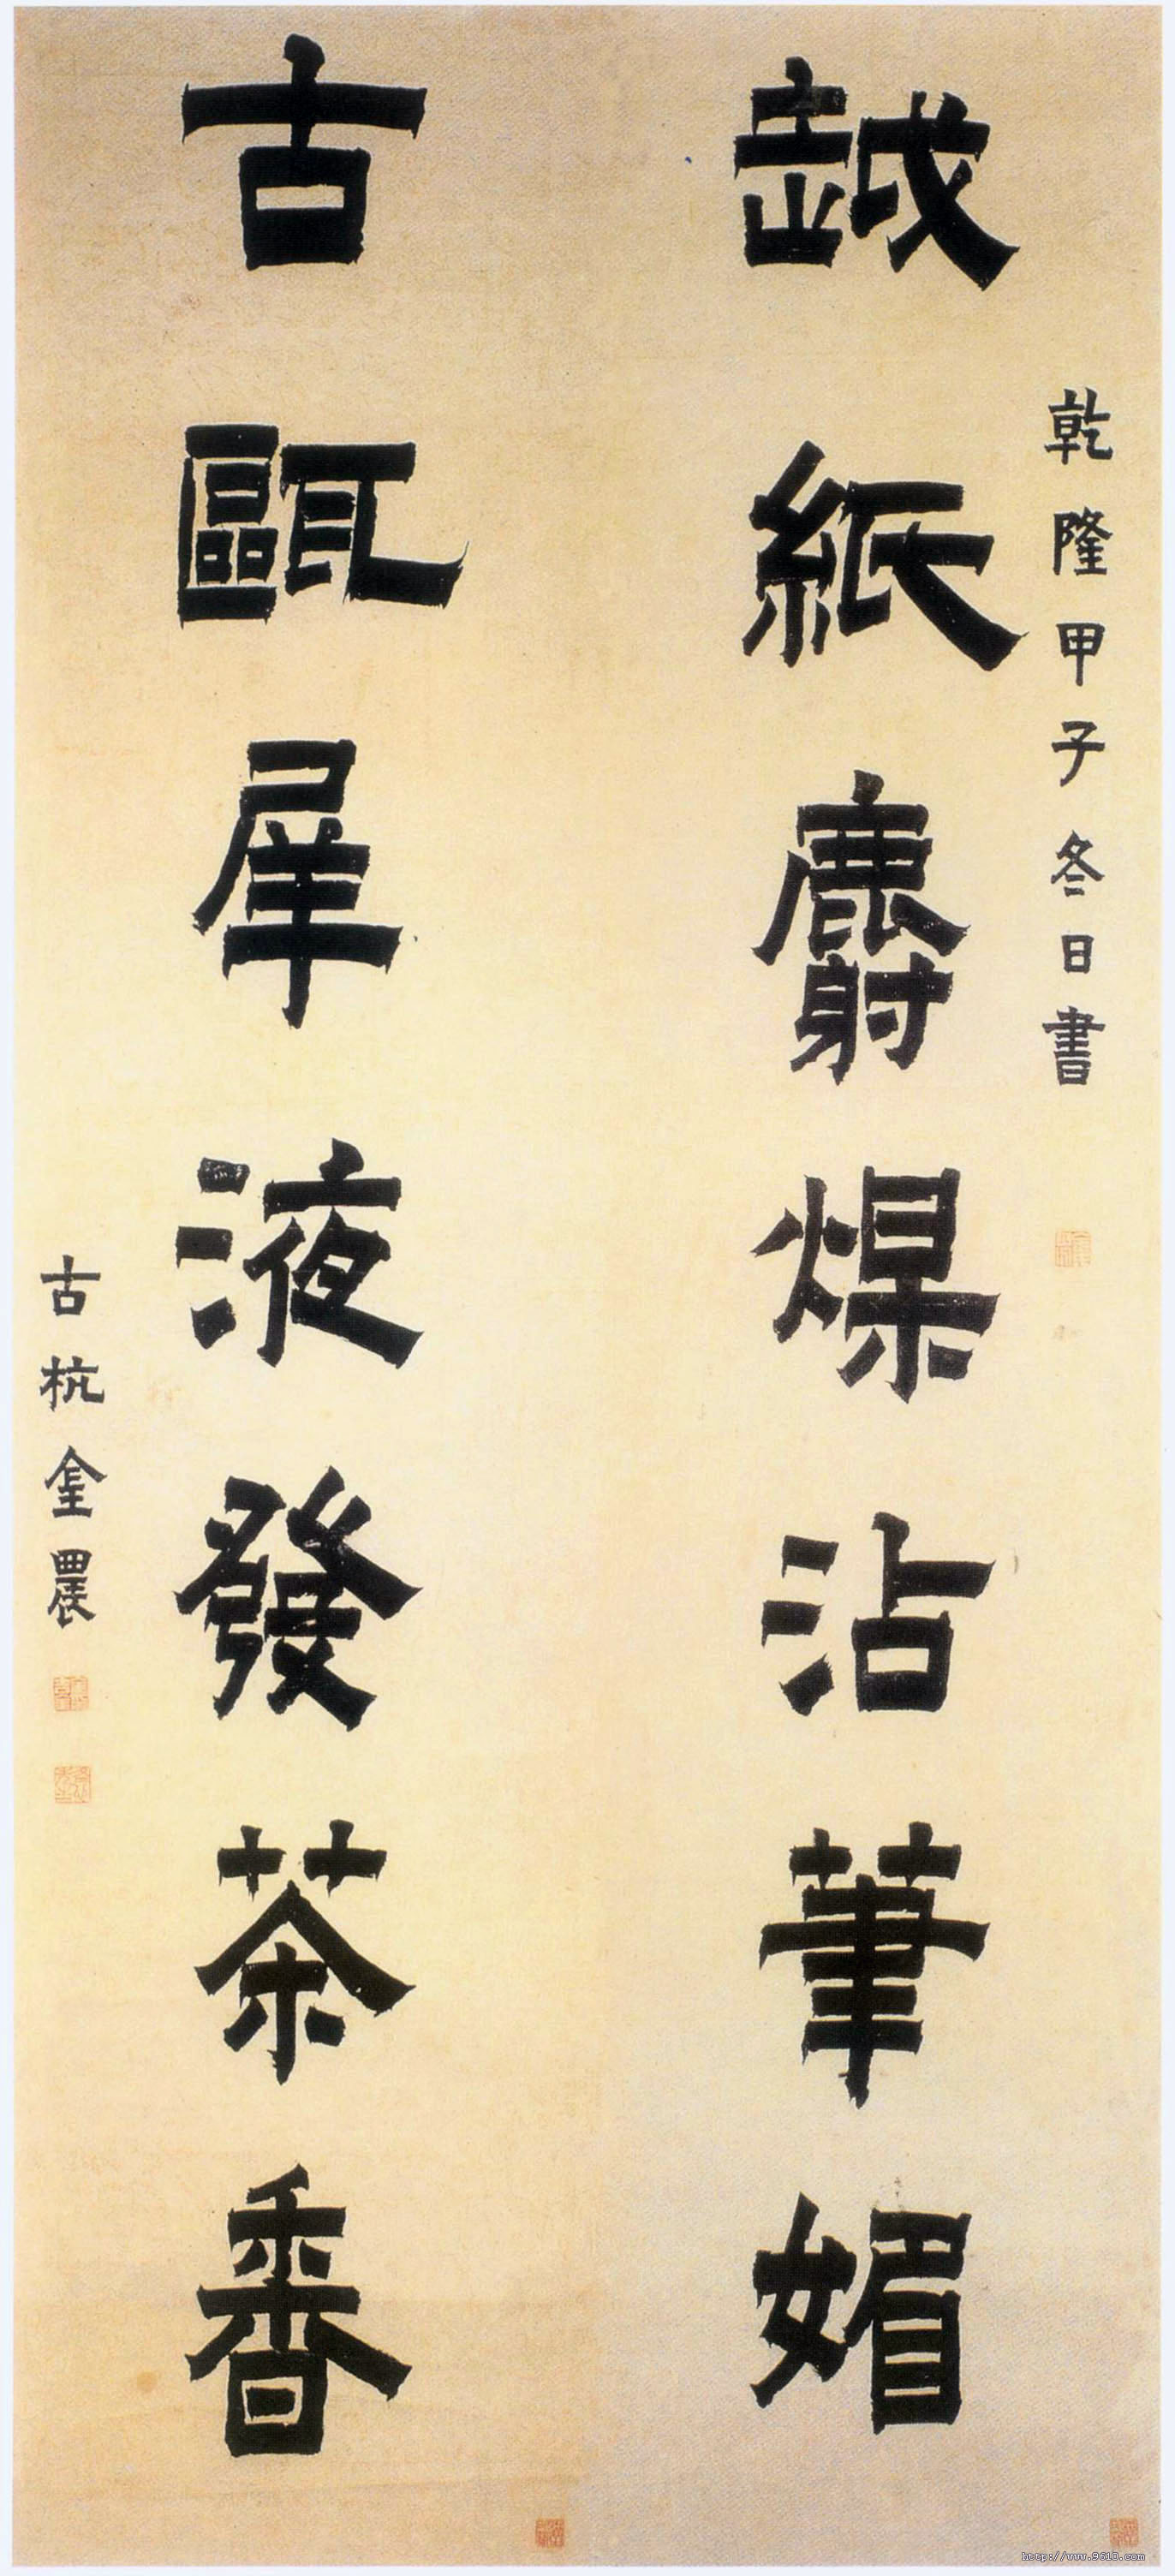 乾隆甲子冬日書
越紙麝煤沾筆媚
古甌犀液發茶香
古杭金農
http://www.9610.com